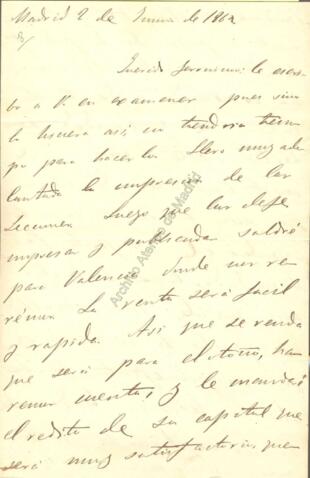 Madrid 2 de Junio de 1862
Querido Jeronimo: le escri-
bo a V. en examenes pues sino
lo hiciera asi, no tendria tiem-
po para hacerlo. Llevo muy ade-
lantada la impresion de las
Lecciones. Luego que las deje
impresas y publicadas saldré
para Valencia donde nos ve-
rémos. La venta será facil
y rapida. Asi que se venda
que será para el otoño, ha-
remos cuentas, y le mandaré
el rédito de su capital que
será muy satisfactorio, pues
Archivo Ateneo de Madrid